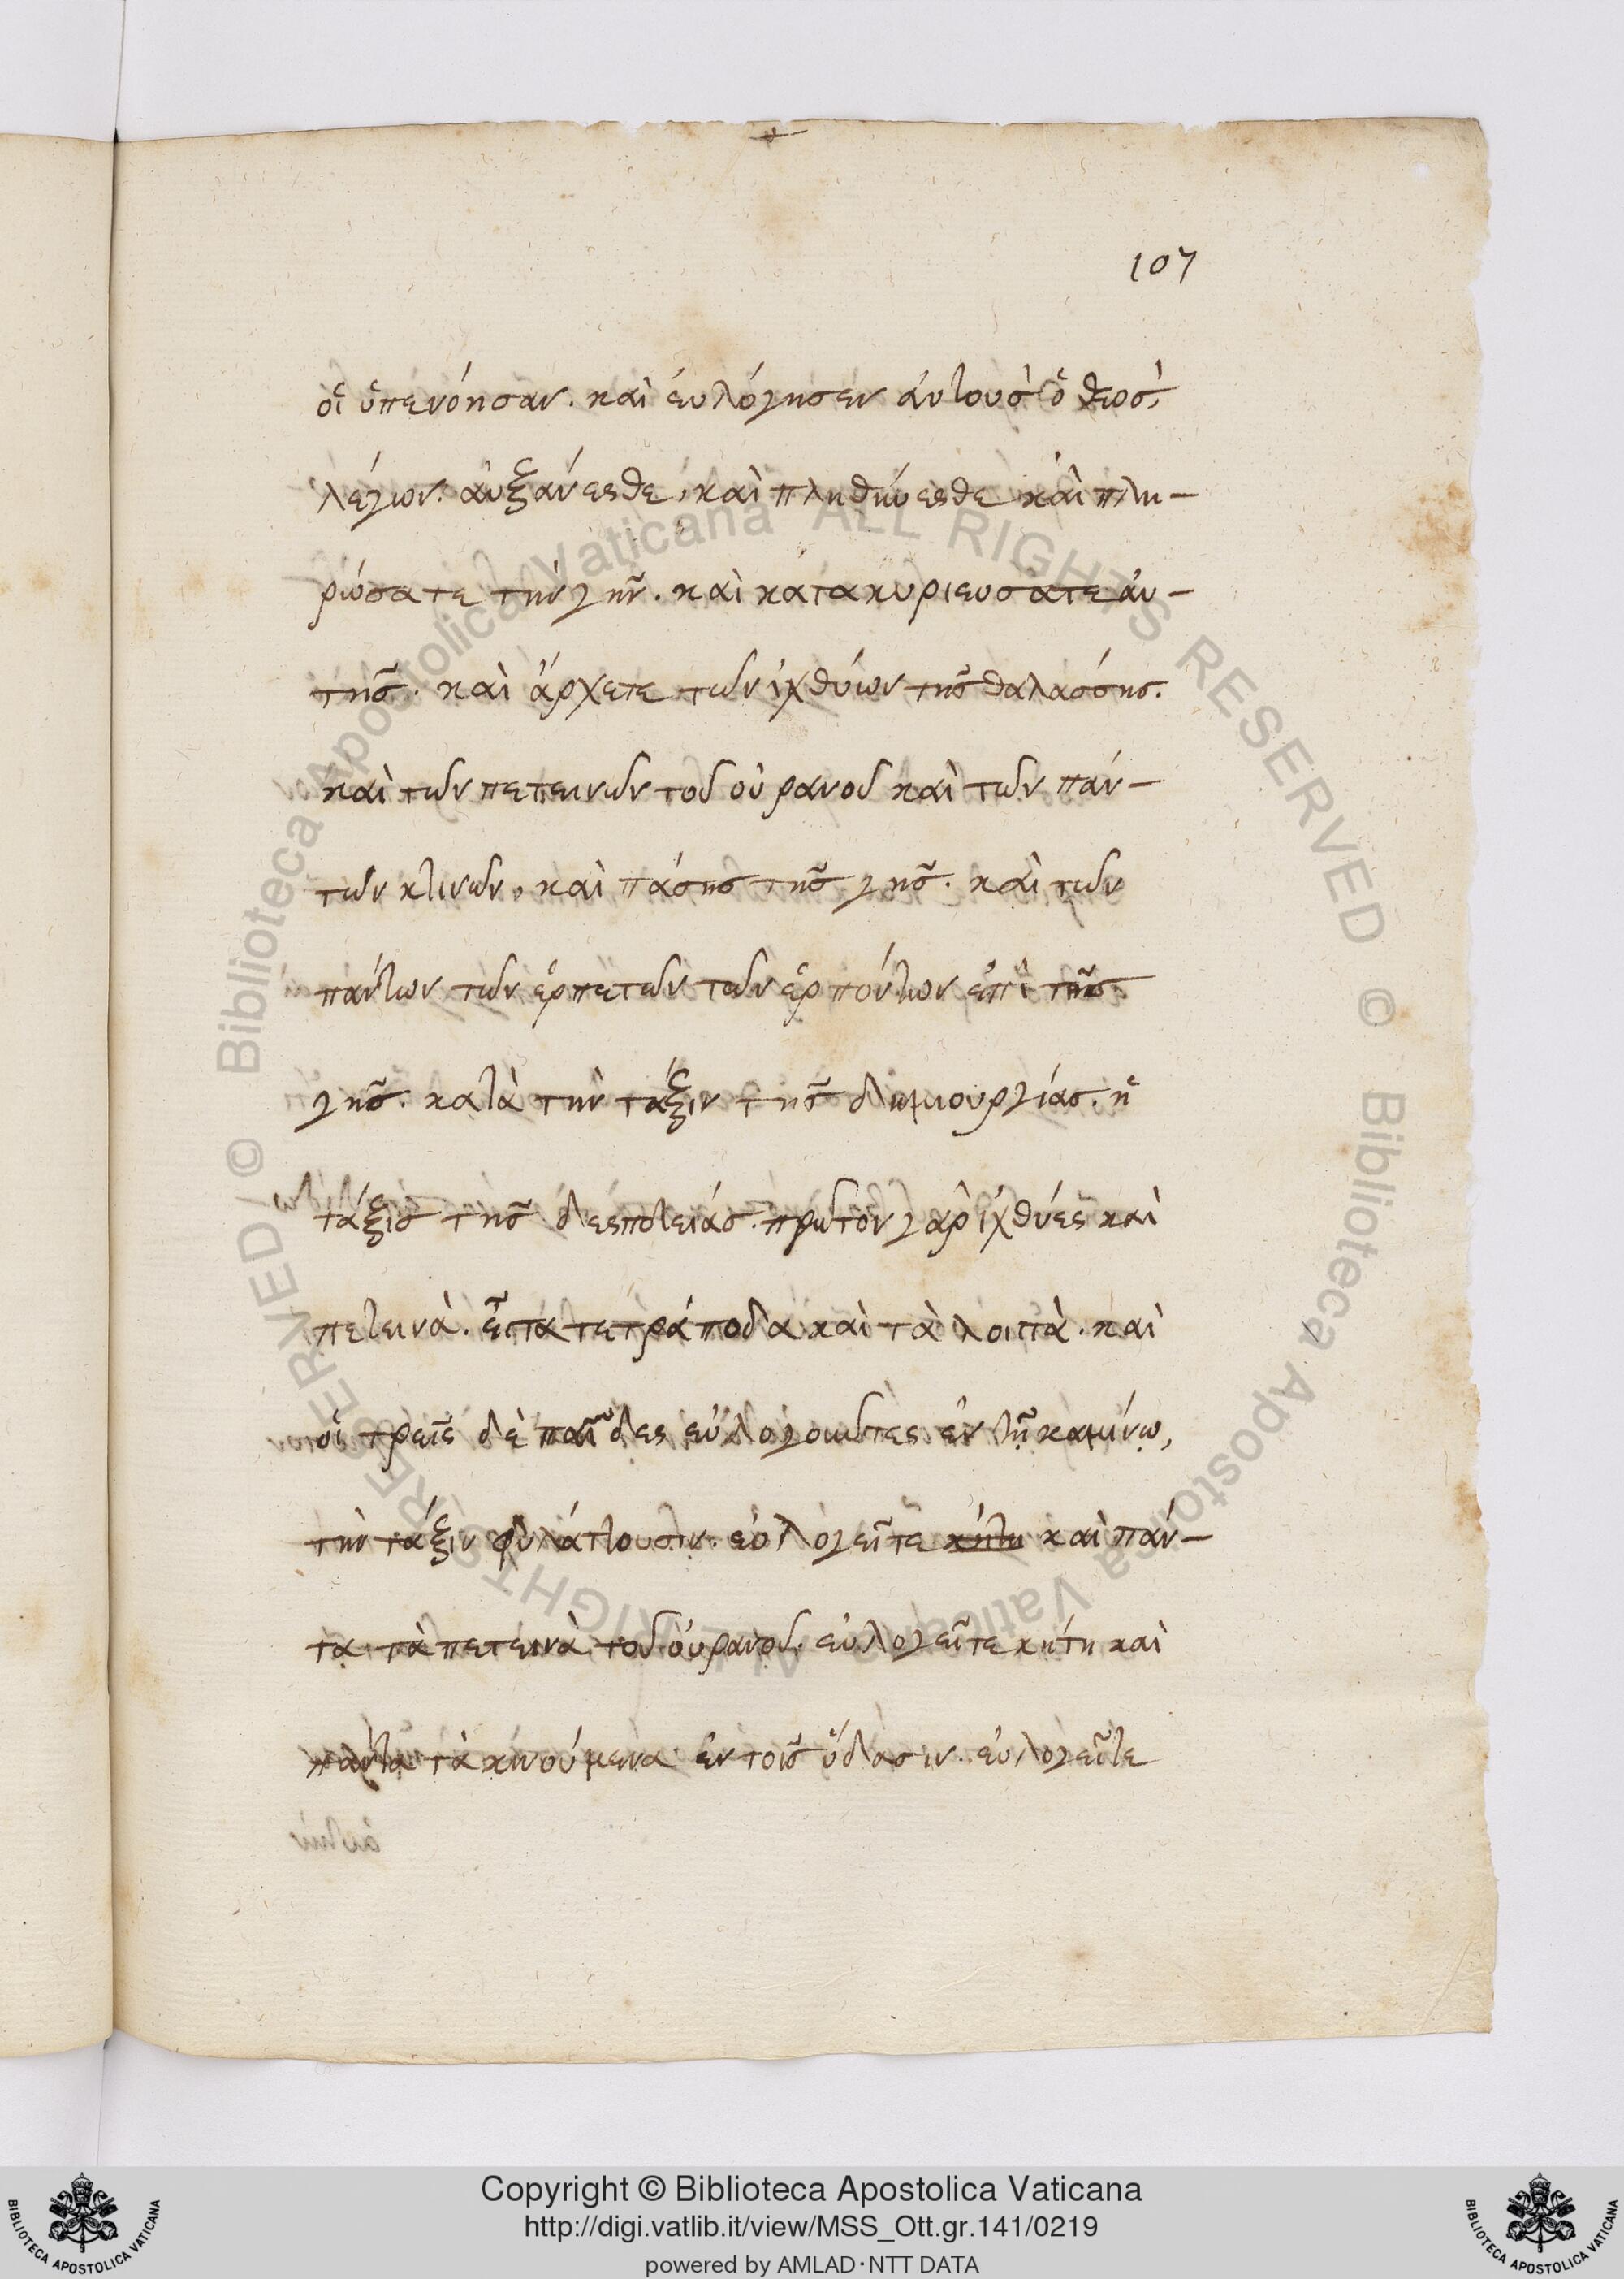 107
οἳ ὑπενόησαν. καὶ ἐυλόγησεν ἀυτοὺς ὁ θεος,
λέγων. ἀυξάνεσθε, καὶ πληθύνεσθε καὶ πλη-
ρώσατε τὴν γῆν. καὶ κατακυριευσατε ἀυ-
τῆς. καὶ ἄρχετε τῶν ἰχθύων τῆς θαλάσσης.
καὶ τῶν πετεινῶν τοῦ οὐρανοῦ καὶ τῶν πάν-
των κτινῶν, καὶ πάσης τῆς γῆς. καὶ τῶν
πάντων τῶν ἑρπετῶν τῶν ἑρπόντων ἐπὶ τῆς
γῆς. κατὰ τὴν τάξιν τῆς δημιουργίας. ἡ
τάξις τῆς δεσποτείας. πρῶτον γὰρ ἰχθύες καὶ
πετεινὰ. εἶτα τετράποδα καὶ τὰ λοιπὰ. καὶ
οἱ τρεῖς δὲ παῖδες εὐλογοῦντες ἐν τῇ καμίνῳ,
τὴν τάξιν φυλάττουσιν. εὐλογεῖτε κήτη καὶ πάν-
τα τὰ πετεινὰ τοῦ ὀυρανοῦ. εὐλογεῖτε κήτη καὶ
πάντα τὰ κινούμενα ἐν τοῖς ὕδασιν. εὐλογεῖτε
Copyright © Biblioteca Apostolica Vaticana
http://digi.vatlib.it/view/MSS_Ott.gr.141/0219
powered by AMLAD·NTT DATA
© Biblioteca Apostolica Vaticana ALL RIGHTS RESERVED © Biblioteca Apostolica Vaticana ALL RIGHTS RESERVED /
BIBLIOTECA APOSTOLICA VATICANA
BIBLIOTECA APOSTOLICA VATICANA